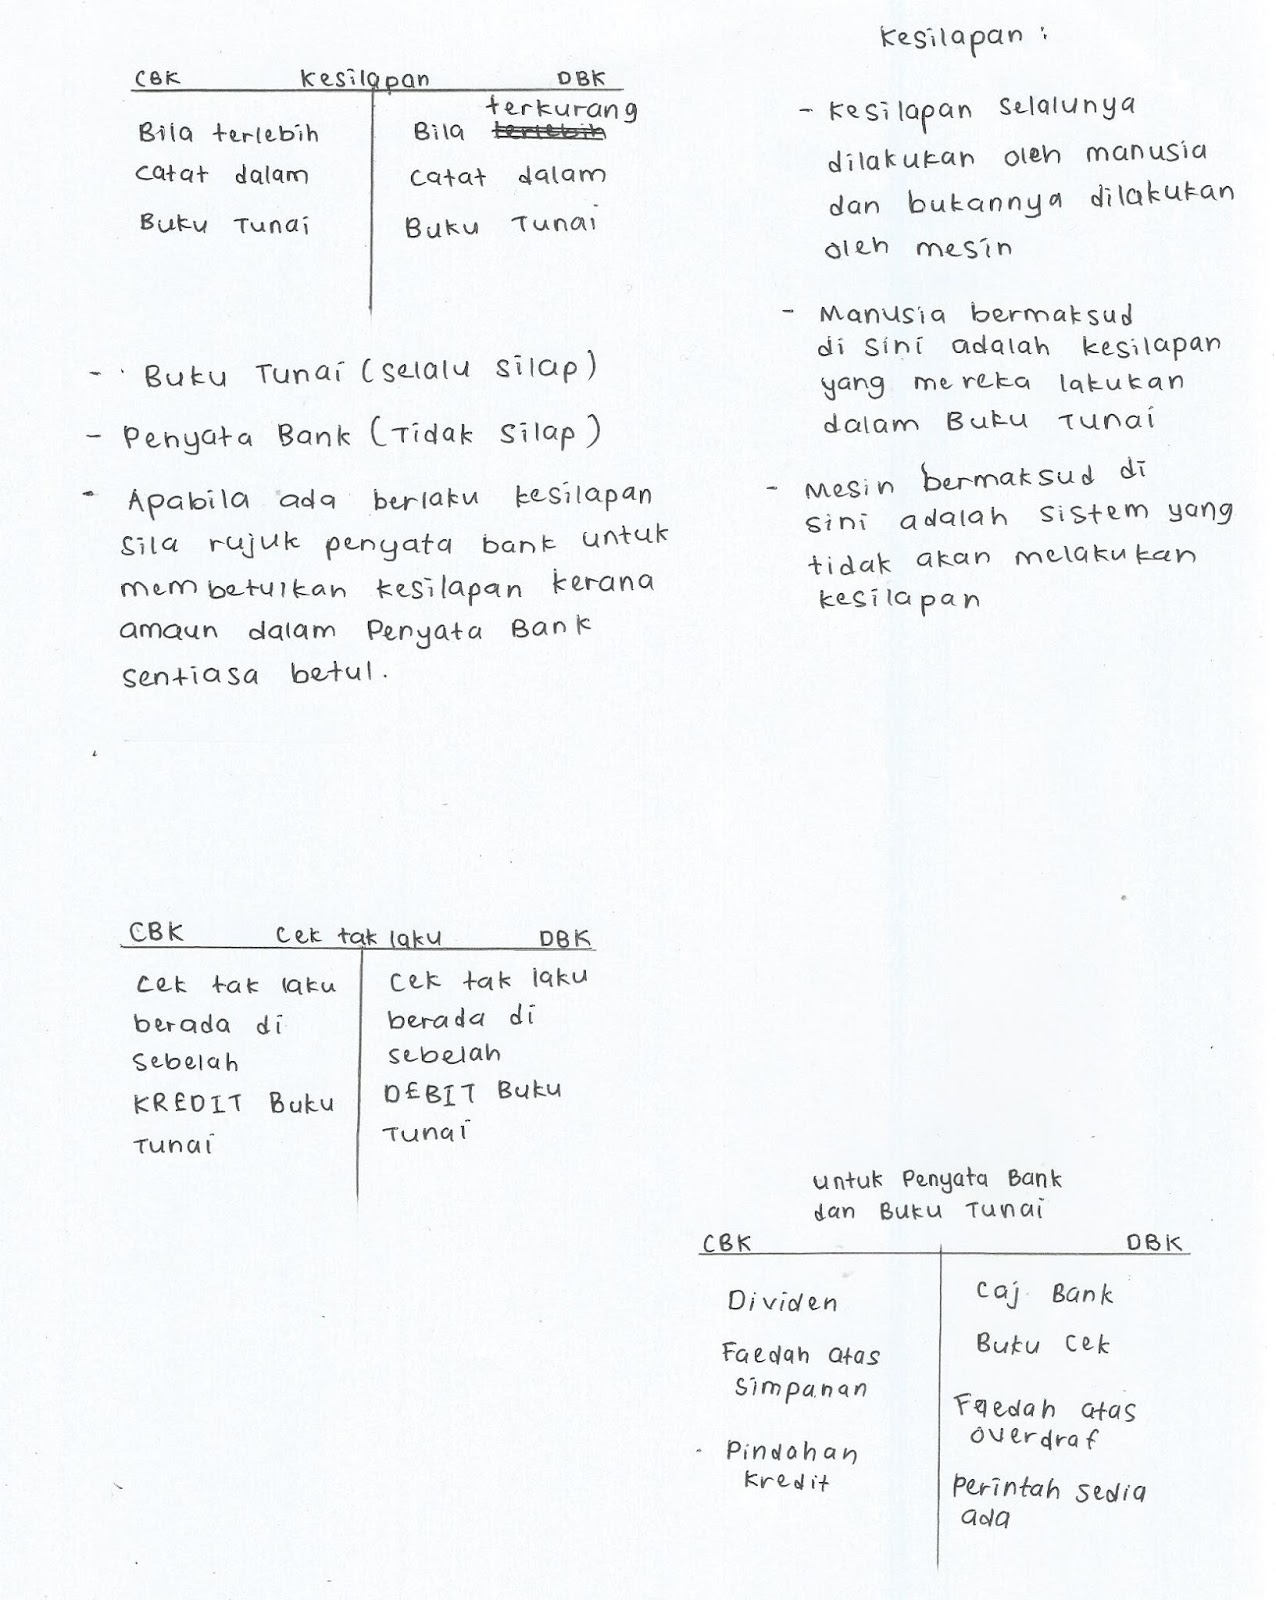 CBK Kesilapan DBK
Bila terlebih
catat dalam
Buku Tunai
terkurang
Bila terlebih
catat dalam
Buku Tunai
- Buku Tunai (selalu silap)
- Penyata Bank (Tidak silap)
- Apabila ada berlaku kesilapan
sila rujuk penyata bank untuk
membetulkan kesilapan kerana
amaun dalam Penyata Bank
sentiasa betul.
Kesilapan :
- Kesilapan selalunya
dilakukan oleh manusia
dan bukannya dilakukan
oleh mesin
- Manusia bermaksud
di sini adalah kesilapan
yang mereka lakukan
dalam Buku Tunai
- Mesin bermaksud di
sini adalah sistem yang
tidak akan melakukan
kesilapan
CBK Cek tak laku DBK
Cek tak laku
berada di
sebelah
KREDIT Buku
Tunai
Cek tak laku
berada di
sebelah
DEBIT Buku
Tunai
untuk Penyata Bank
dan Buku Tunai
CBK DBK
Dividen
Faedah atas
simpanan
Pindahan
kredit
Caj Bank
Buku Cek
Faedah atas
overdraf
Perintah sedia
ada